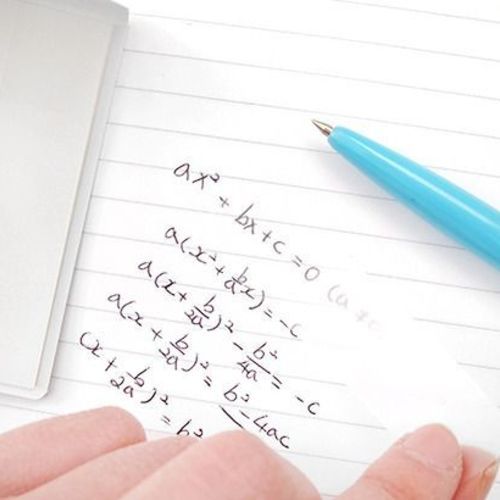 ax² + bx + c = 0 (a ≠ 0
a(x² + b/a x) = -c
a(x + b/2a)² - b²/4a = -c
a(x + b/2a)² = b² - 4ac
(x + b/2a)² = b²